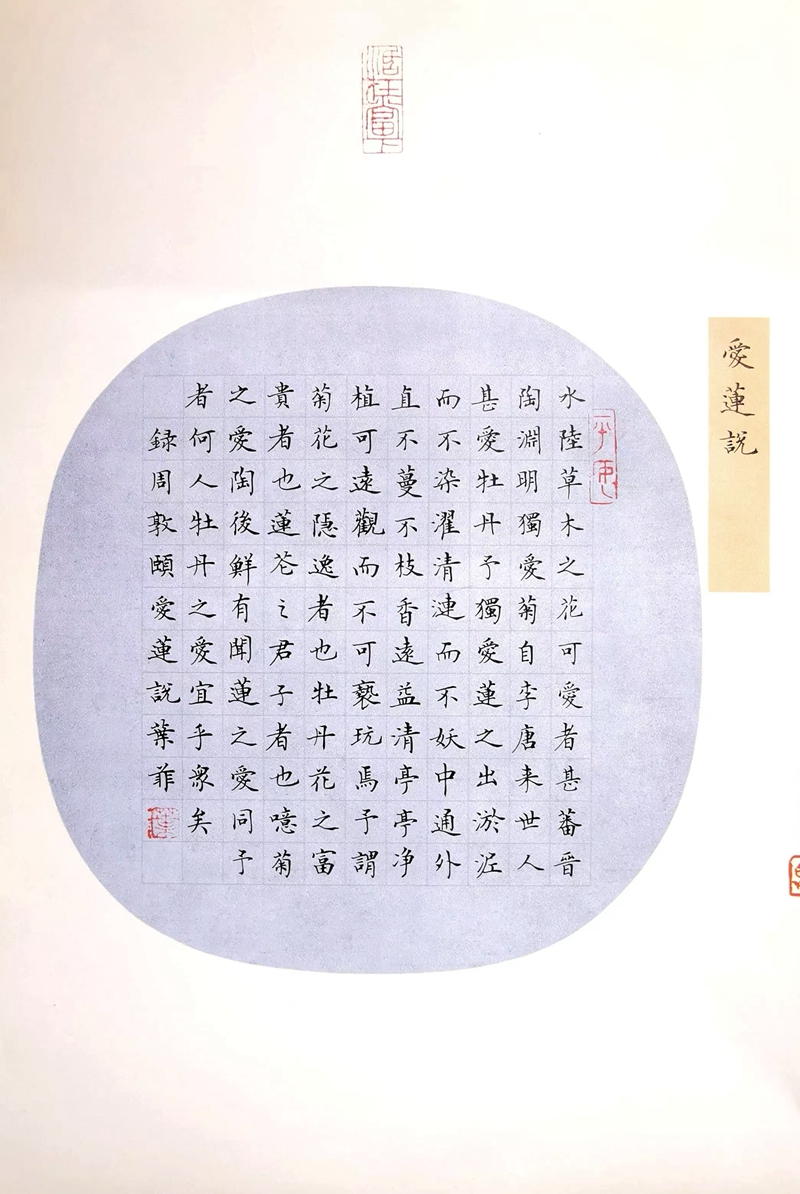 愛蓮説
水陸草木之花可愛者甚蕃晉
陶淵明獨愛菊自李唐来世人
甚愛牡丹予獨愛蓮之出淤泥
而不染濯清漣而不妖中通外
直不蔓不枝香遠益清亭亭净
植可遠觀而不可褻玩焉予謂
菊花之隱逸者也牡丹花之富
貴者也蓮花之君子者也噫菊
之愛陶後鮮有聞蓮之愛同予
者何人牡丹之愛宜乎衆矣
録周敦頤愛蓮説葉菲